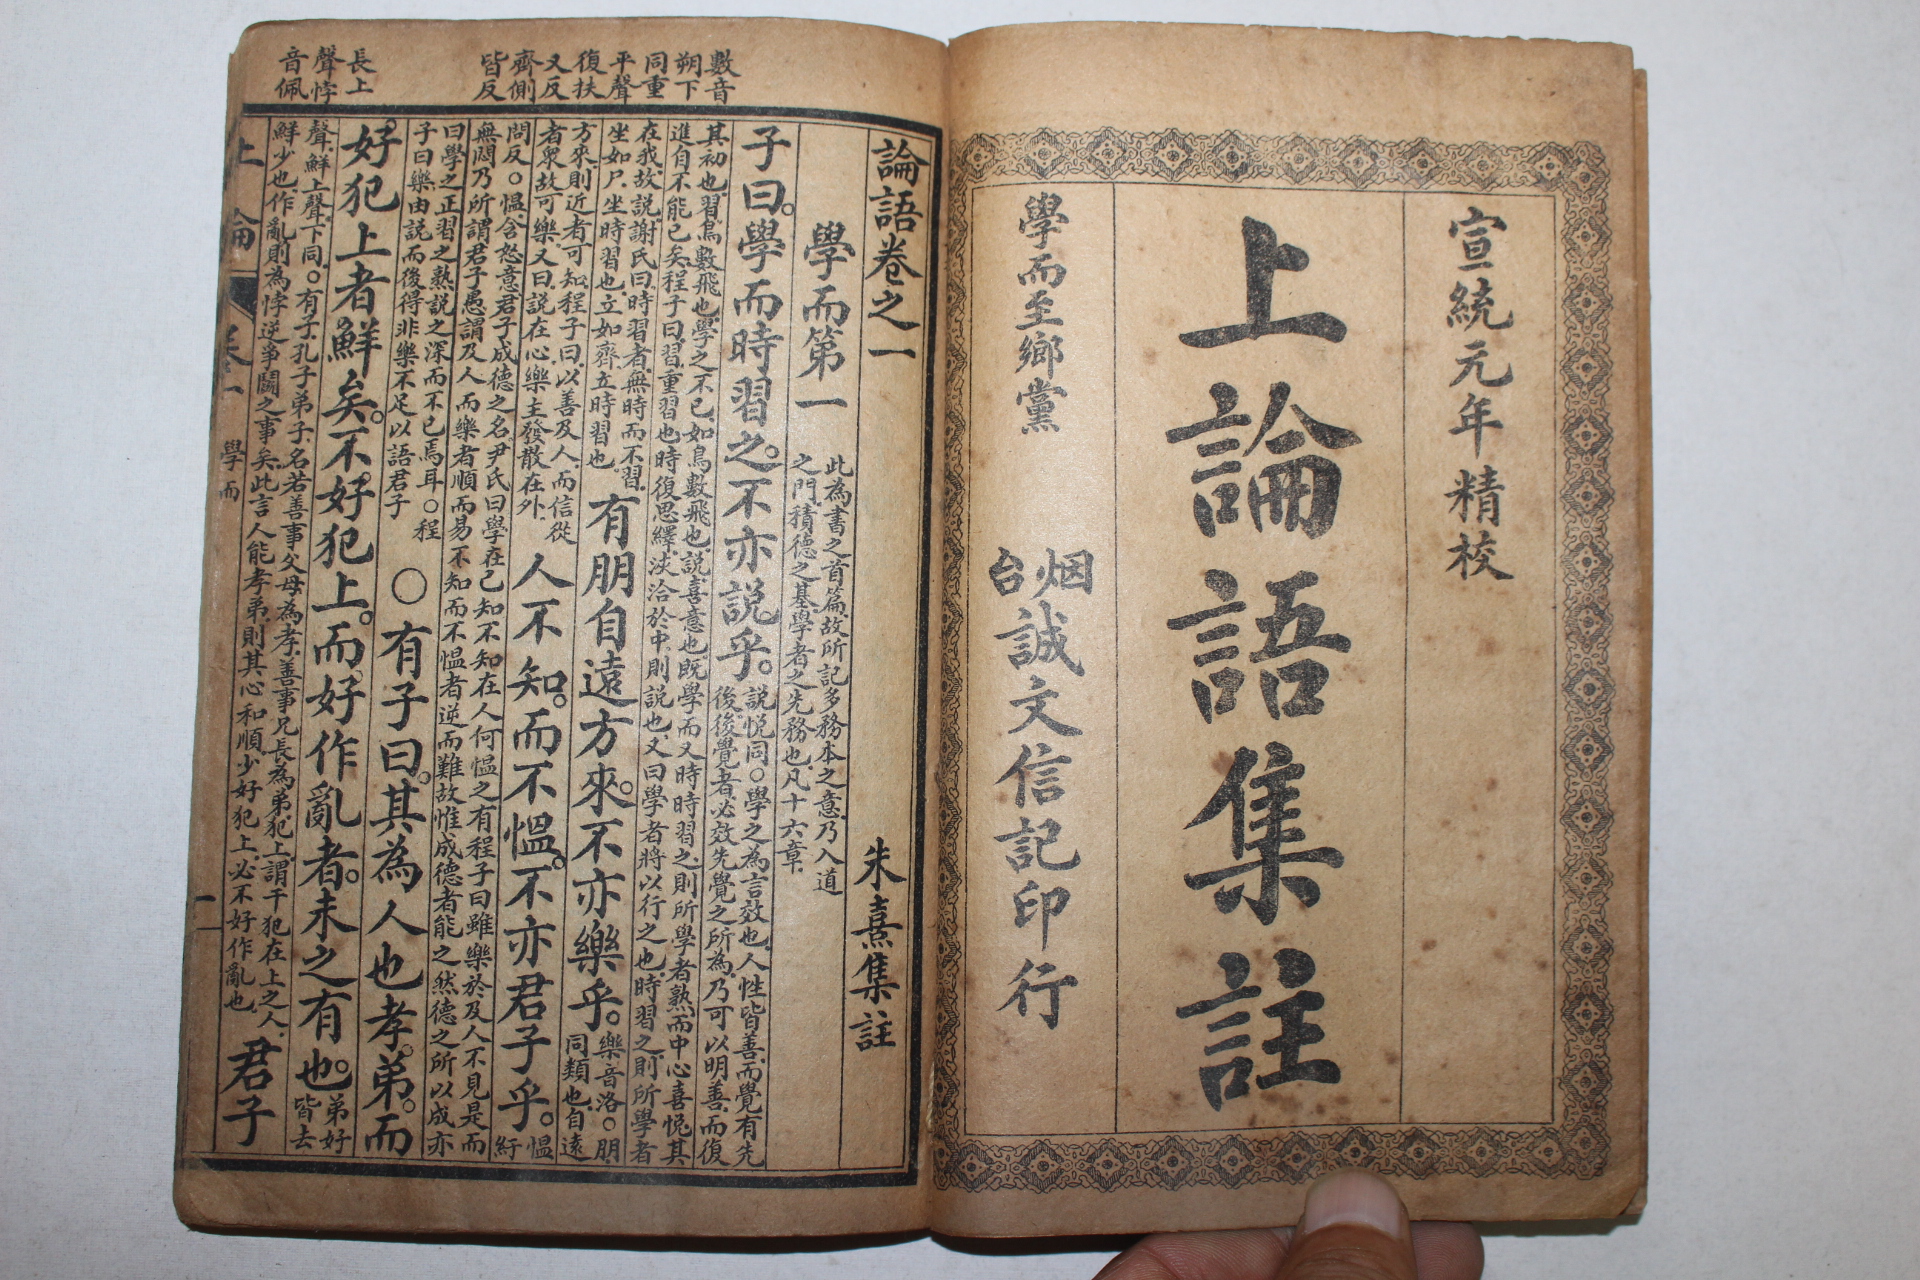 宣統元年精校
上論語集註
學而至鄉黨
烟台誠文信記印行
數音
朔下
同重
平聲
復扶
又反
齊側
皆反
長上
聲悖
音佩
論語卷之一
朱熹集註
學而第一
此為書之首篇故所記多務本之意乃入道
之門積德之基學者之先務也凡十六章
子曰學而時習之不亦説乎
説悦同○學之為言效也人性皆善而覺有先
後後覺者必效先覺之所為乃可以明善而復
其初也習鳥數飛也學之不已如鳥數飛也説喜意也既學而又時時習之則所學者熟而中心喜悦其
進自不能已矣程子曰習重習也時復思繹浹洽於中則説也又曰學者將以行之也時習之則所學者
在我故説謝氏曰時習者無時而不習
坐如尸坐時習也立如齊立時習也
有朋自遠方來不亦樂乎
樂音洛○朋
同類也自遠
方來則近者可知程子曰以善及人而信從
者衆故可樂又曰説在心樂主發散在外
人不知而不慍不亦君子乎
慍紆
問反○慍含怒意君子成德之名尹氏曰學在己知不知在人何慍之有程子曰雖樂於及人不見是而
無悶乃所謂君子愚謂及人而樂者順而易不知而不慍者逆而難故惟成德者能之然德之所以成亦
曰學之正習之熟説之深而不已焉耳○程
子曰樂由説而後得非樂不足以語君子
○有子曰其為人也孝弟而
好犯上者鮮矣不好犯上而好作亂者未之有也
弟好
皆去
聲鮮上聲下同○有子孔子弟子名若善事父母為孝善事兄長為弟犯上謂干犯在上之人
鮮少也作亂則為悖逆爭鬭之事矣此言人能孝弟則其心和順少好犯上必不好作亂也
君子
上論
卷一
學而
一